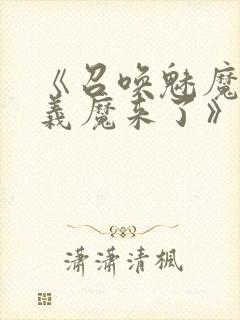 《召唤魅魔
義魔来了》
潇潇清楓